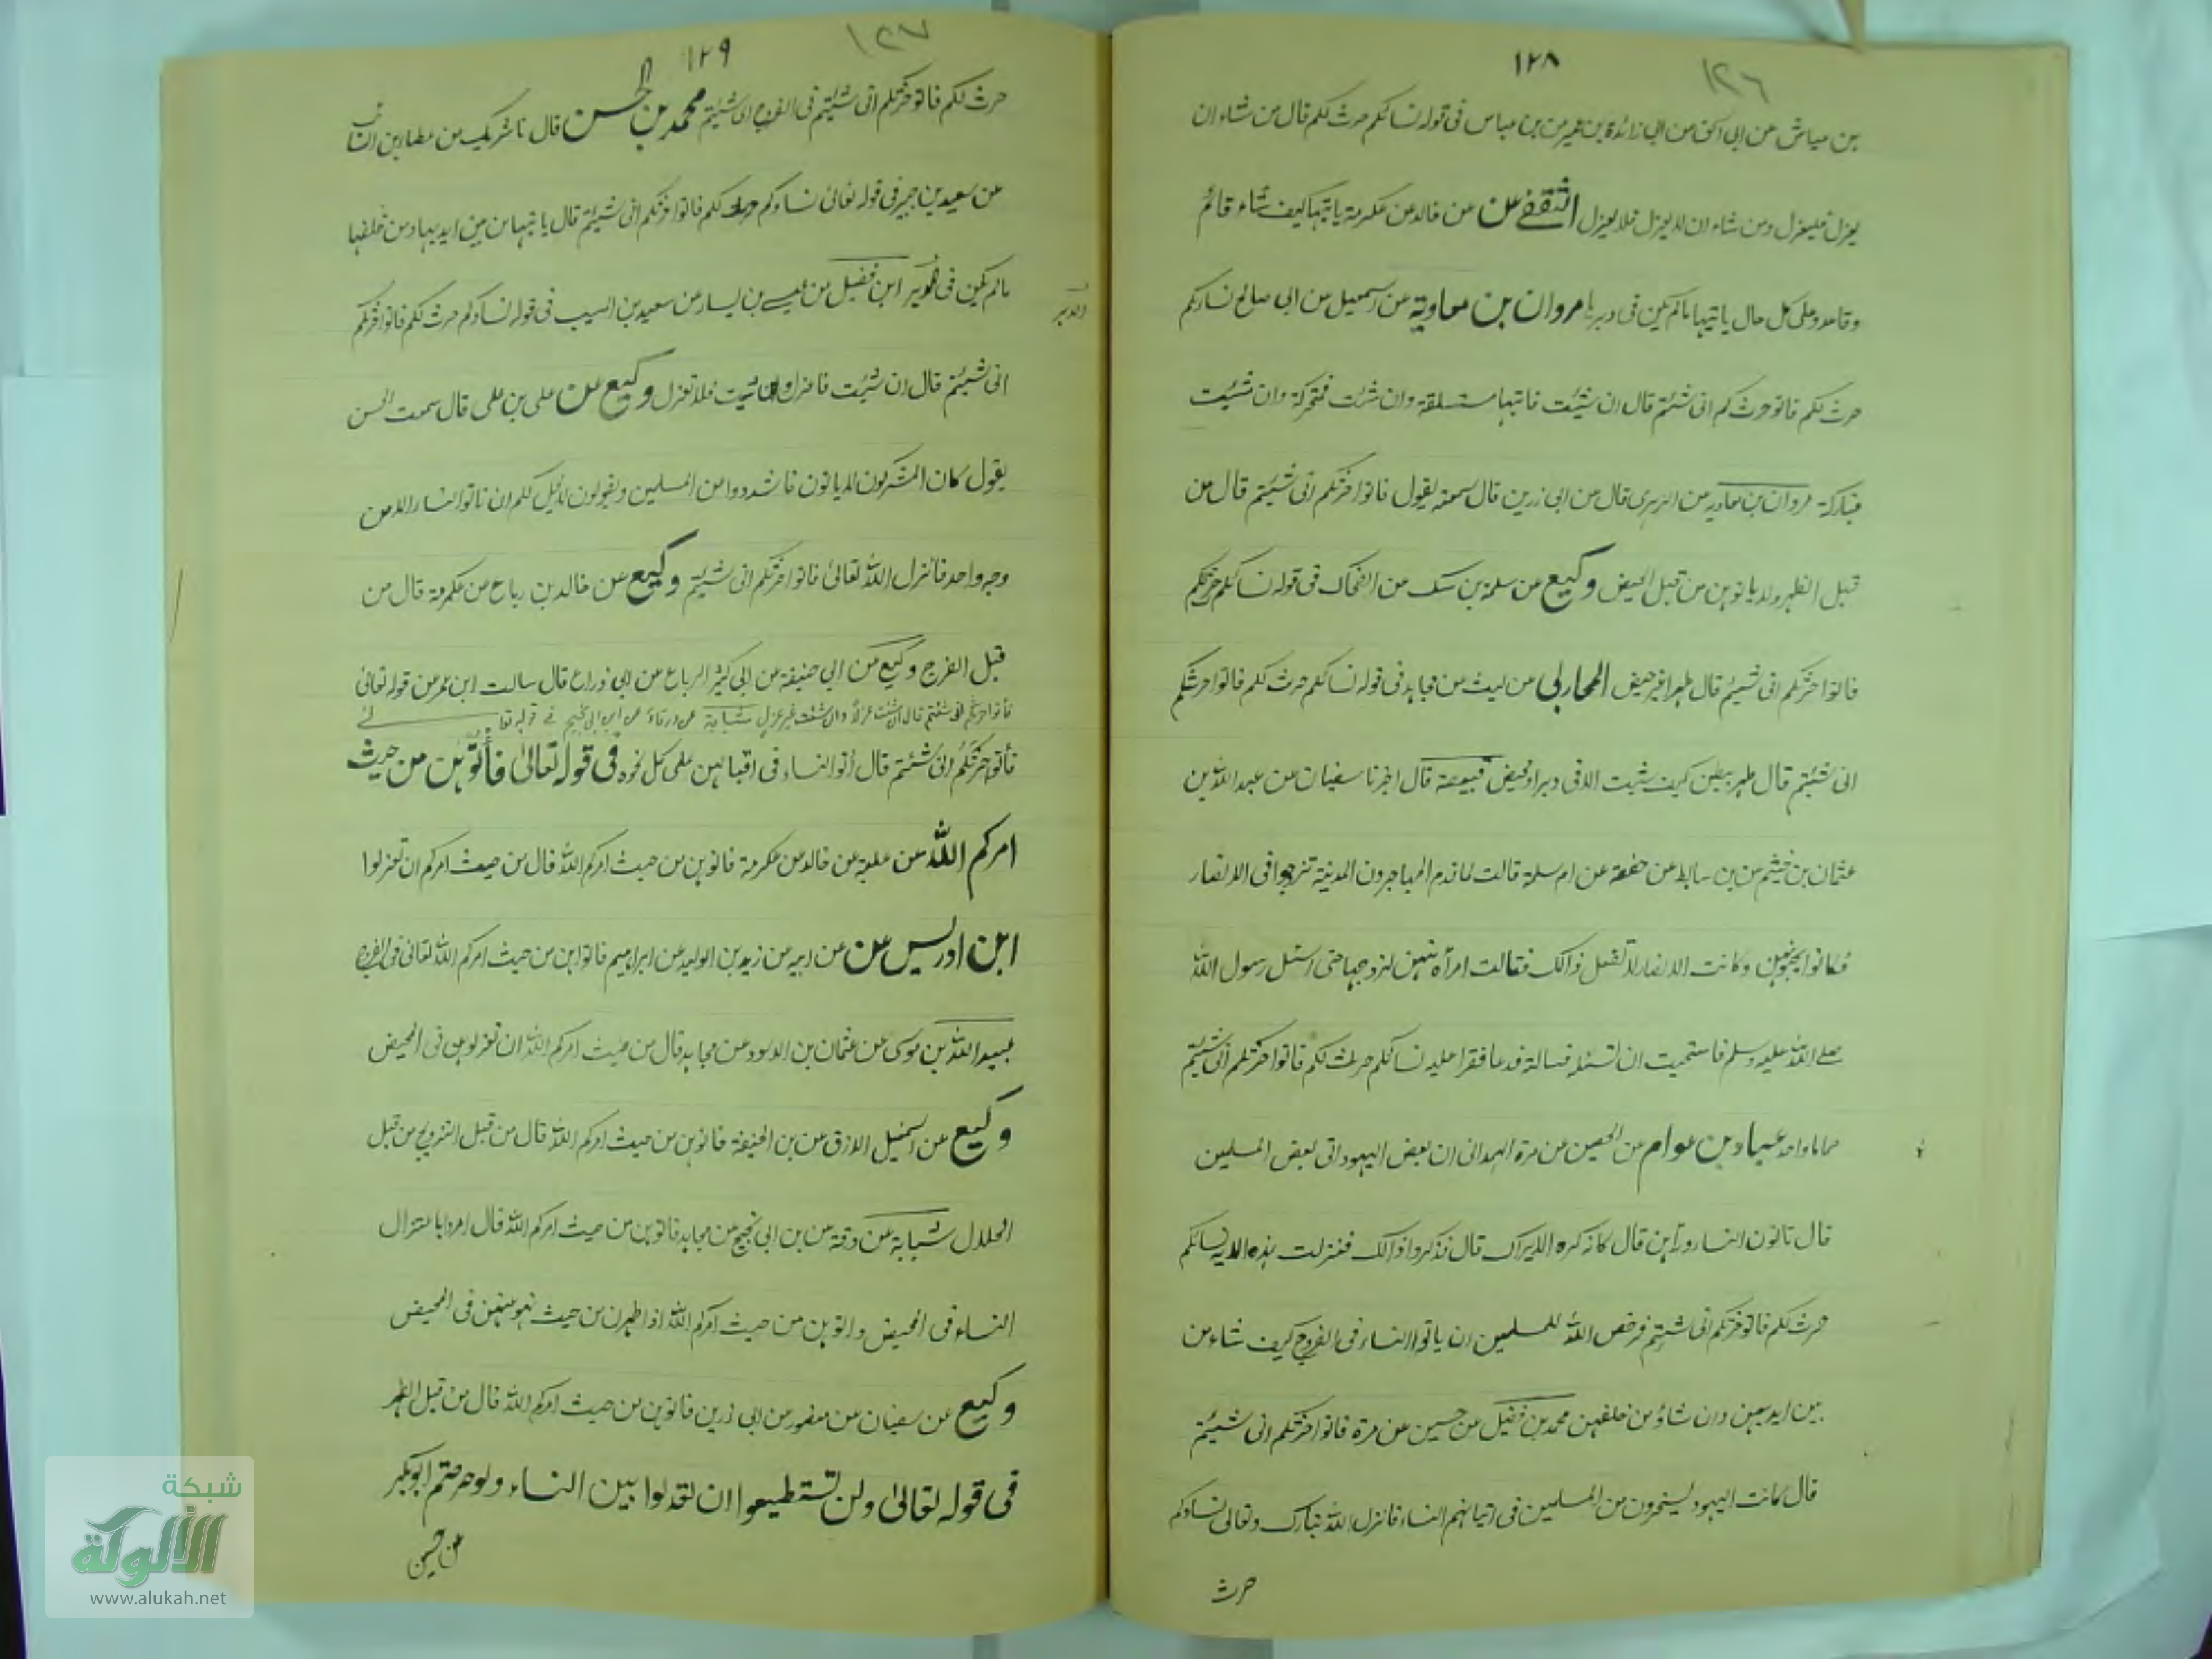 ١٢٨
١٢٦
بن عياش عن ابي اسحق عن ابي زائدة بن عمير عن بن عباس فى قوله نسائكم حرث لكم قال من شاء ان
يعزل فليعزل ومن شاء ان لا يعزل فلا يعزل الثقفے عن عن خالد عن عكرمة ياتيها كيف شاء قائم
وقاعد وعلى كل حال ياتيها مالم يكن فى دبرها مروان بن معاوية عن اسمعيل عن ابى صالح نساؤكم
حرث لكم فاتو حرث كم انى شئتم قال ان شئيت فاتيها مستلقة وان شئت فمتحركة وان شئيت
فباركة مروان بن معاويه عن الزبرى قال عن ابى زرين قال سمعته يقول فاتوا حرثكم انى شئيتم قال من
قبل الطهر ولا ياتوهن من قبل الحيض وكيع عن سلمة بن عن الضحاك فى قوله نسائكم حرثكم
فاتوا حرثكم انى شئيتم قال طهرا غير حيض المحاربى عن ليث عن مجاهد فى قوله نسائكم حرث لكم فاتوا حرثكم
انى شئيتم قال ظهر ببطن كيف شئيت الا فى دبر او محيض قبيصة قال اخبرنا سفيان عن عبد الله بن
عثمان بن خيثم عن بن سابط عن حفصة عن ام سلمة قالت لما قدم المهاجرون المدينة تزوجوا فى الانصار
فكانوا يجبونهن وكانت الانصار لا تفعل ذالك فقالت امرأة منهن لزوجها حتى اسئل رسول الله
صلے الله عليه وسلم فاستحيت ان تسئله فسالة فدعا فقرا عليه نسائكم حرث لكم فاتوا حرثكم انى شئيتم
صماما واحد عباد بن عوام عن الحصين عن مرة الهمدانى ان بعض اليهود اتى بعض المسلمين
قال تاتون النساء ورآهن قال كانه كره الابراك قال فذكروا ذالك فنزلت هذه الاية نسائكم
حرث لكم فاتو حرثكم انى شئيتم فرخص الله للمسلمين ان ياتوا النساء فى الفروج كيف شاء من
بين ايديهن وان شاؤ من خلفهن محمد بن فضيل عن حسين عن مرة فاتوا حرثكم انى شئيتم
قال كانت اليهود يسخرون من المسلمين فى اتيانهم النساء فانزل الله تبارك وتعالى نساءكم
حرث
١٢٩
١٢٧
حرث لكم فاتو حرثكم انى شئيتم فى الفرج انى شئيتم محمد بن الحسن قال نا شريك عن عطا بن السائب
عن سعيد بن جبير فى قوله تعالى نساؤكم حرث لكم فاتوا حرثكم انى شئيتم قال ياتيها من بين ايديها ومن خلفها
مالم يكن فى ابن فضيل عن عيسے بن يسار عن سعيد بن المسيب فى قوله نساؤكم حرث لكم فاتوا حرثكم
الدبر
انى شئيتم قال ان شئيت فاعزل وان شئيت فلا تعزل وكيع عن على بن على قال سمعت الحسن
يقول كان المشركون لا ياتون فاشددوا من المسلمين ويقولون لا يحل لكم ان تاتوا النساء الا من
وجه واحد فانزل الله تعالىٰ فاتوا حرثكم انى شئيتم وكيع عن خالد بن رباح عن عكرمة قال من
قبل الفرج وكيع عن ابي حنيفة عن ابى كثير الرباح عن ابى ذراع قال سالت ابن عمر عن قوله تعالىٰ
فأتوا حرثكم انى شئتم قال ان شئت عزلا وان شئت غير عزل شبابة عن ورقاء عن ابن ابى نجيح فے قوله تعالے
فأتوا حرثكم انى شئتم قال أتوا النساء فى اقبالهن على كل نحوه فى قوله تعالىٰ فأتوهن من حيث
امركم الله عن علية عن خالد عن عكرمة فاتوهن من حيث امركم الله قال من حيث امركم ان تعزلوا
ابن ادريس عن عن ابيه عن زيد بن الوليد عن ابراهيم فاتوهن من حيث امركم الله تعالى فى الفرج
عبيد الله بن موسى عن عثمان بن الاسود عن مجاهد قال من حيث امركم الله ان تعزلوهن فى المحيض
وكيع عن اسمعيل الازرق عن بن الحنيفة فاتوهن من حيث امركم الله قال من قبل التزويج من قبل
الحلال شبابة عن ورقة عن بن ابى نجيح عن مجاهد فاتوهن من حيث امركم الله قال امروا باعتزال
النساء فى المحيض واتوهن من حيث امركم الله اذا طهرن من حيث نهو عنهن فى المحيض
وكيع عن سفيان عن منصور عن ابى زرين فاتوهن من حيث امركم الله قال من قبل الطهر
فى قوله تعالىٰ ولن تستطيعوا ان تعدلوا بين النساء ولو حرصتم ابو بكر
عن حسين
شبكة
الألوكة
www.alukah.net